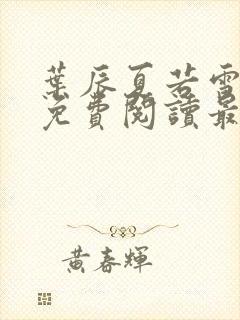 葉辰夏若雪
免費閱讀最
黃春輝